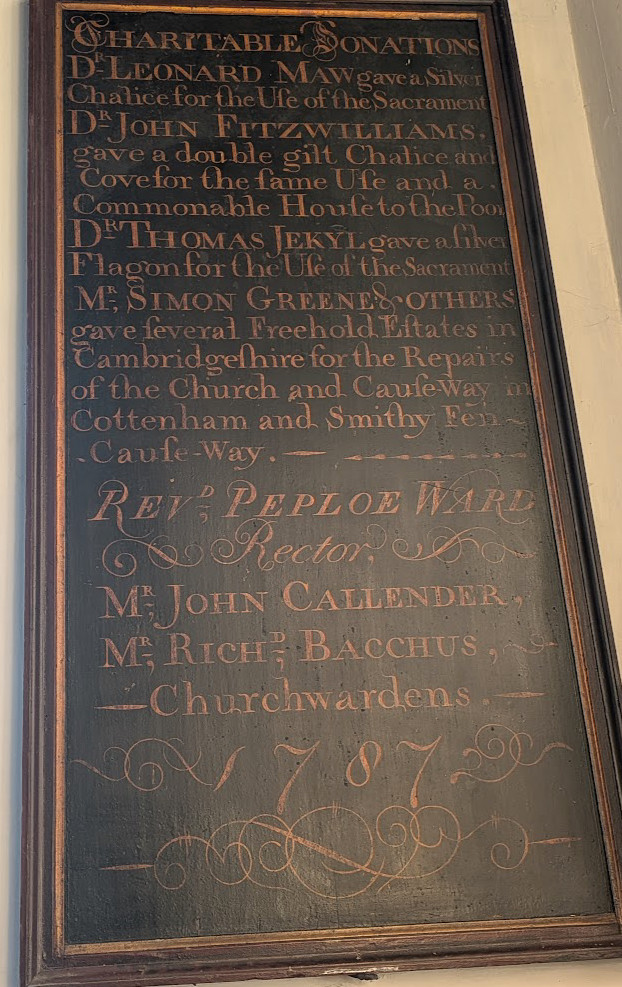 CHARITABLE DONATIONS
Dr. LEONARD MAW gave a Silver
Chalice for the Uſe of the Sacrament
Dr. JOHN FITZWILLIAMS,
gave a double gilt Chalice and
Cove for the ſame Uſe and a
Commonable Houſe to the Poor
Dr. THOMAS JEKYL gave a ſilver
Flagon for the Uſe of the Sacrament
Mr. SIMON GREENE & OTHERS
gave ſeveral Freehold Eſtates in
Cambridgeſhire for the Repairs
of the Church and Cauſe-Way in
Cottenham and Smithy Fen
Cauſe-Way.
REVD. PEPLOE WARD
Rector,
Mr. JOHN CALLENDER,
Mr. RICHD. BACCHUS,
Churchwardens.
1787